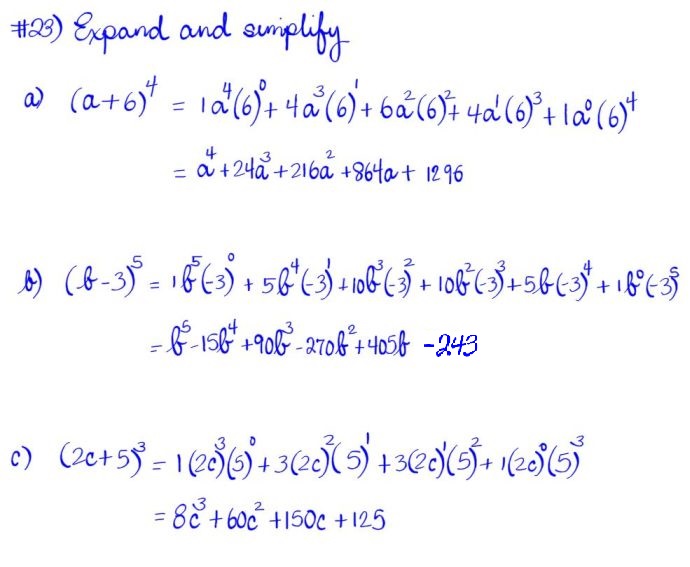 #23) Expand and simplify
a) (a+6)⁴ = 1a⁴(6)⁰ + 4a³(6)¹ + 6a²(6)² + 4a¹(6)³ + 1a⁰(6)⁴
= a⁴ + 24a³ + 216a² + 864a + 1296
b) (b-3)⁵ = 1b⁵(-3)⁰ + 5b⁴(-3)¹ + 10b³(-3)² + 10b²(-3)³ + 5b(-3)⁴ + 1b⁰(-3)⁵
= b⁵ - 15b⁴ + 90b³ - 270b² + 405b - 243
c) (2c+5)³ = 1(2c)³(5)⁰ + 3(2c)²(5)¹ + 3(2c)¹(5)² + 1(2c)⁰(5)³
= 8c³ + 60c² + 150c + 125